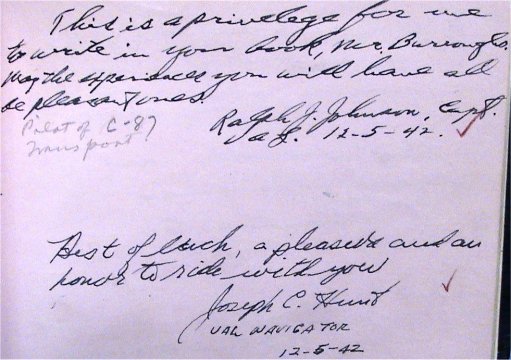 This is a privilege for me
to write in your book, Mr. Burroughs.
May the experiences you will have all
be pleasant ones.
Ralph J. Johnson, Capt.
Pilot of C-87
Transport
UAL. 12-5-42.
Best of luck, a pleasure and an
honor to ride with you
Joseph C. Hunt
UAL NAVIGATOR
12-5-42